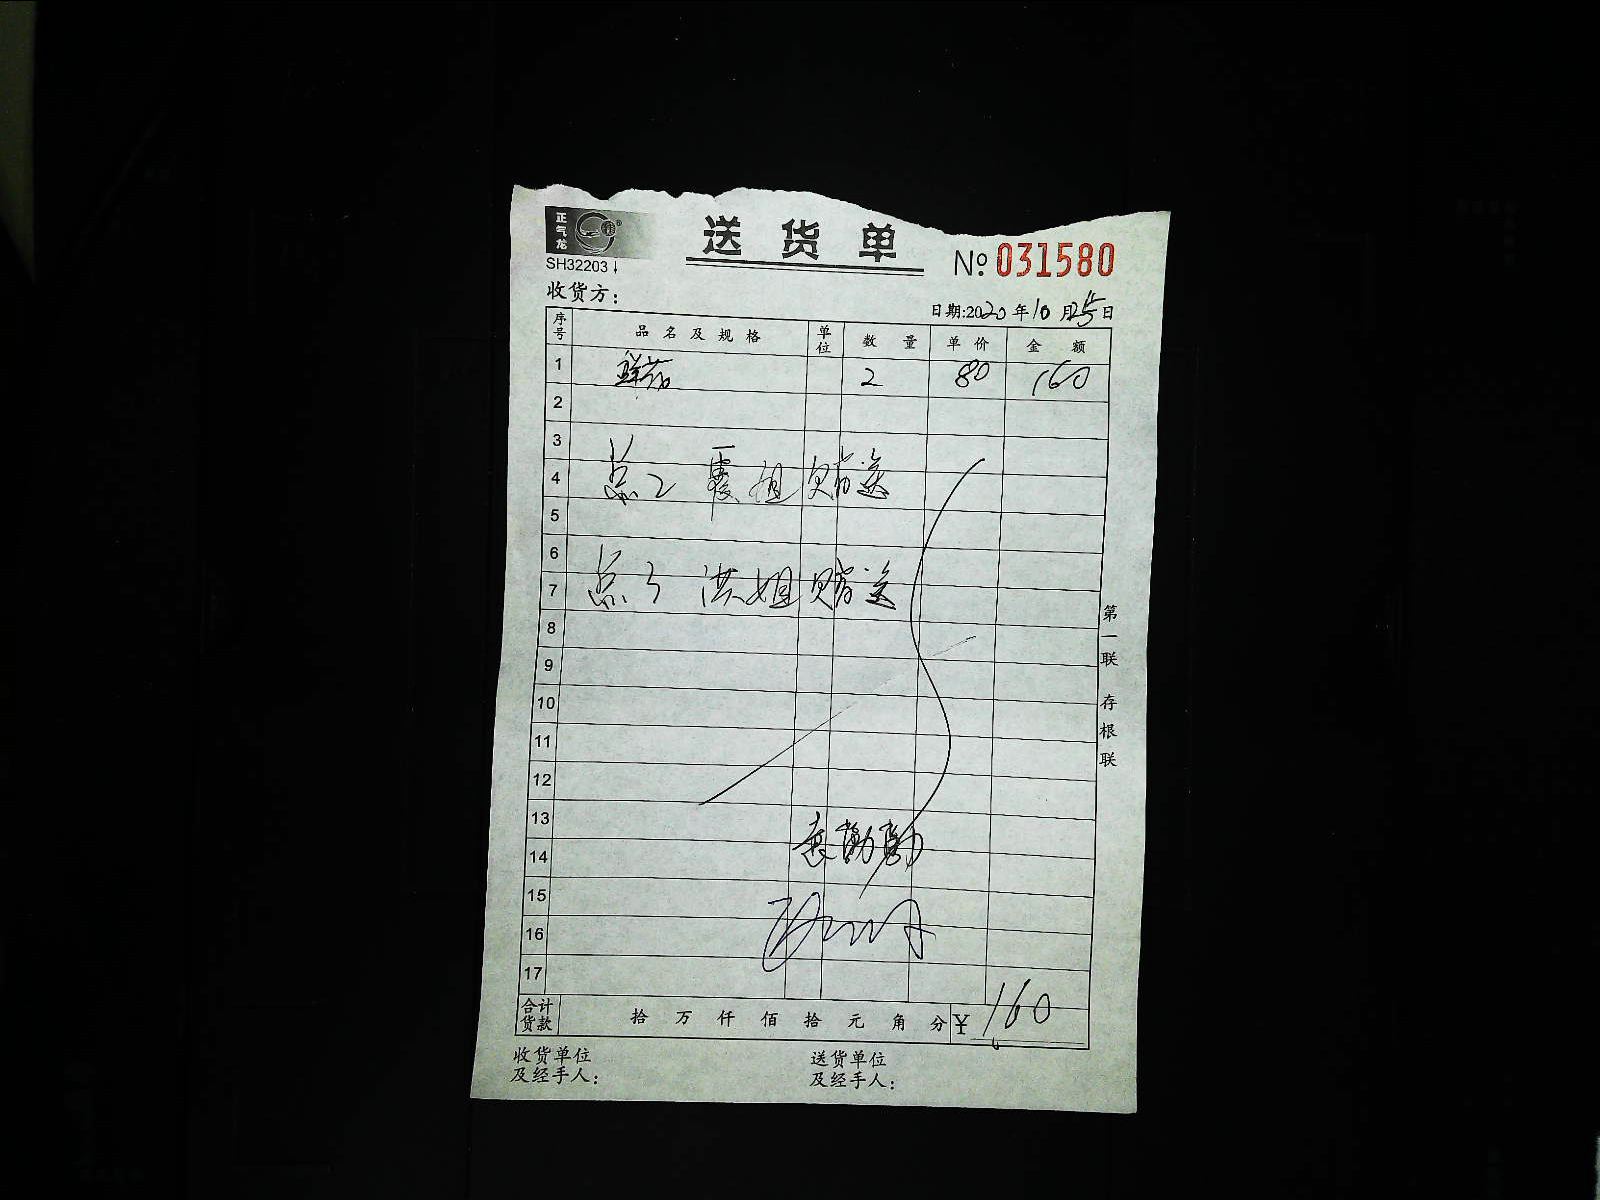 正气龙
送货单
SH32203
№031580
收货方：
日期:2020年10月25日
序号 品名及规格 单位 数量 单价 金额
1 鲜花 2 80 160
2
3
4 总2 霞姐赠送
5
6
7 总3 洪姐赠送
8
9
10
11
12
13
14
15
16
17
合计货款 拾 万 仟 佰 拾 元 角 分 ¥160
收货单位及经手人：
送货单位及经手人：
第一联 存根联